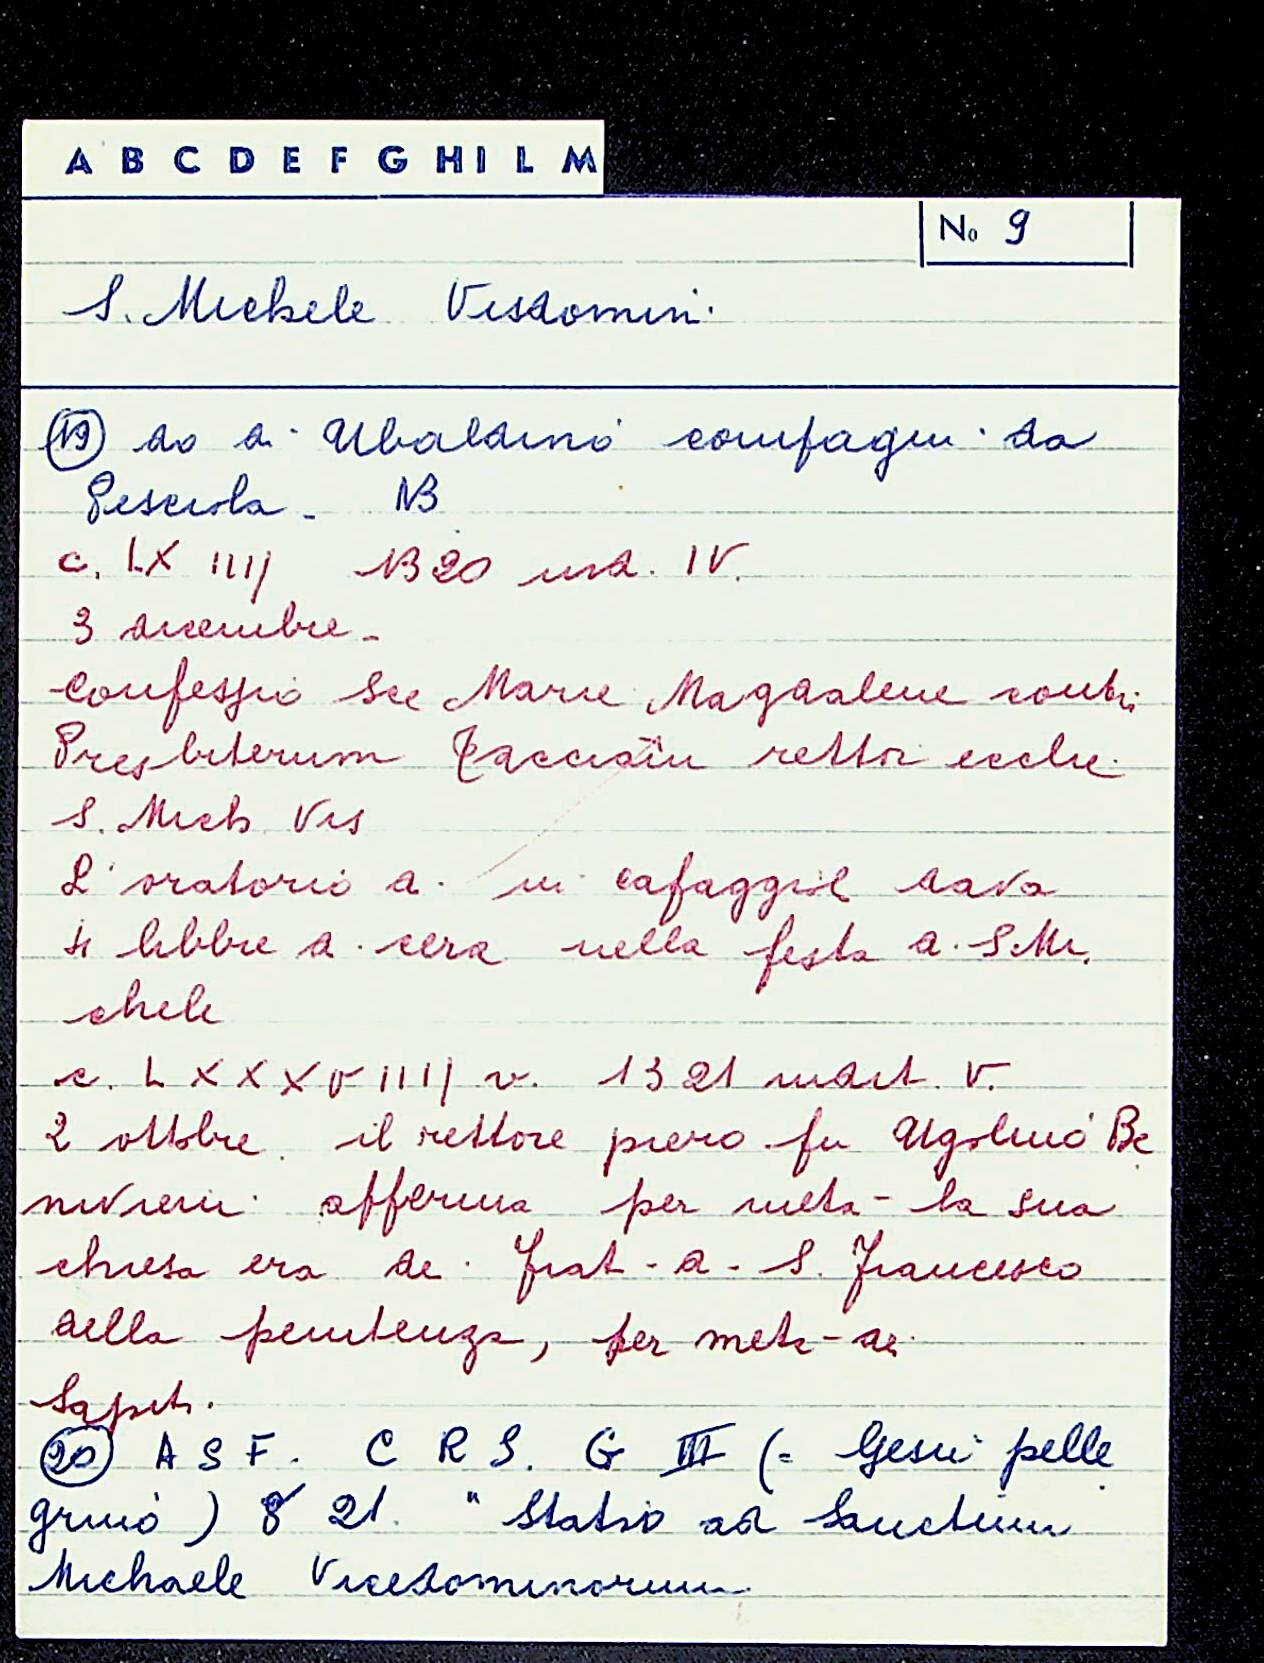 A B C D E F G H I L M
No 9
S. Michele Visdomini
19 do di Ubaldino compagni da
Pesciola - NB
c. LX IIII 1320 ind. IV.
3 dicembre -
Confessio Sce Marie Magdalene contr.
Presbiterum rettor ecclie
S. Mich Vis
L'oratorio di in cafaggiol dava
4 libbre di cera nella festa di S. Mi
chele
c. L X X X V IIII v. 1321 indict. V.
2 ottobre. il rettore piero fu Ugolino Be
nivieni afferma per metà la sua
chiesa era dei frat. di S. Francesco
della penitenza, per metà dei
Sapiti.
20 A S F. C R S. G III (= Gesù pelle
grino) 8 21. " Statio ad Sanctum
Michaele Vicedominorum